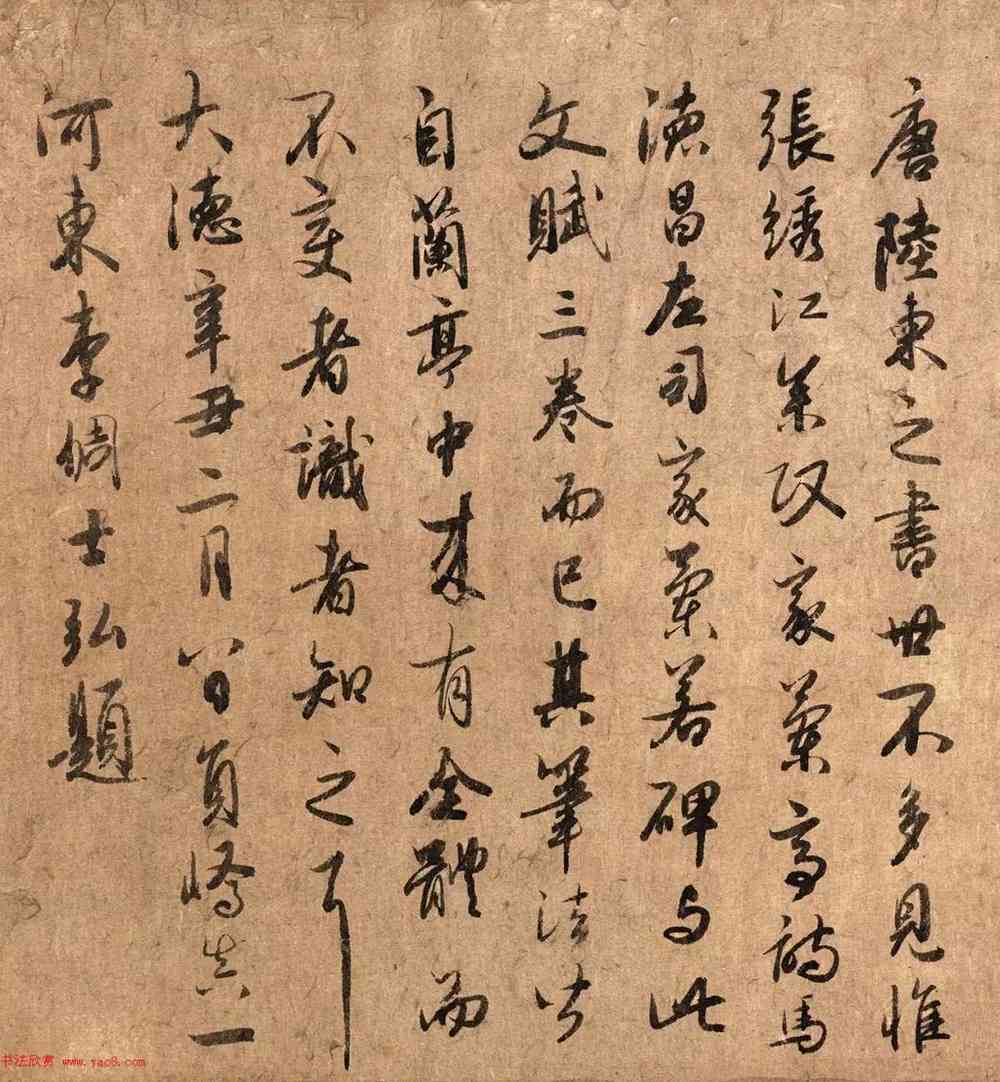 唐陸柬之書世不多見惟
張綉江參政家蘭亭詩馬
德昌左司家蘭若碑与此
文賦三卷而已其筆法皆
自蘭亭中来有全體而
不变者識者知之耳
大德辛丑二月八日員嶠真一
河東李倜士弘題
书法欣赏 www.yac8.com